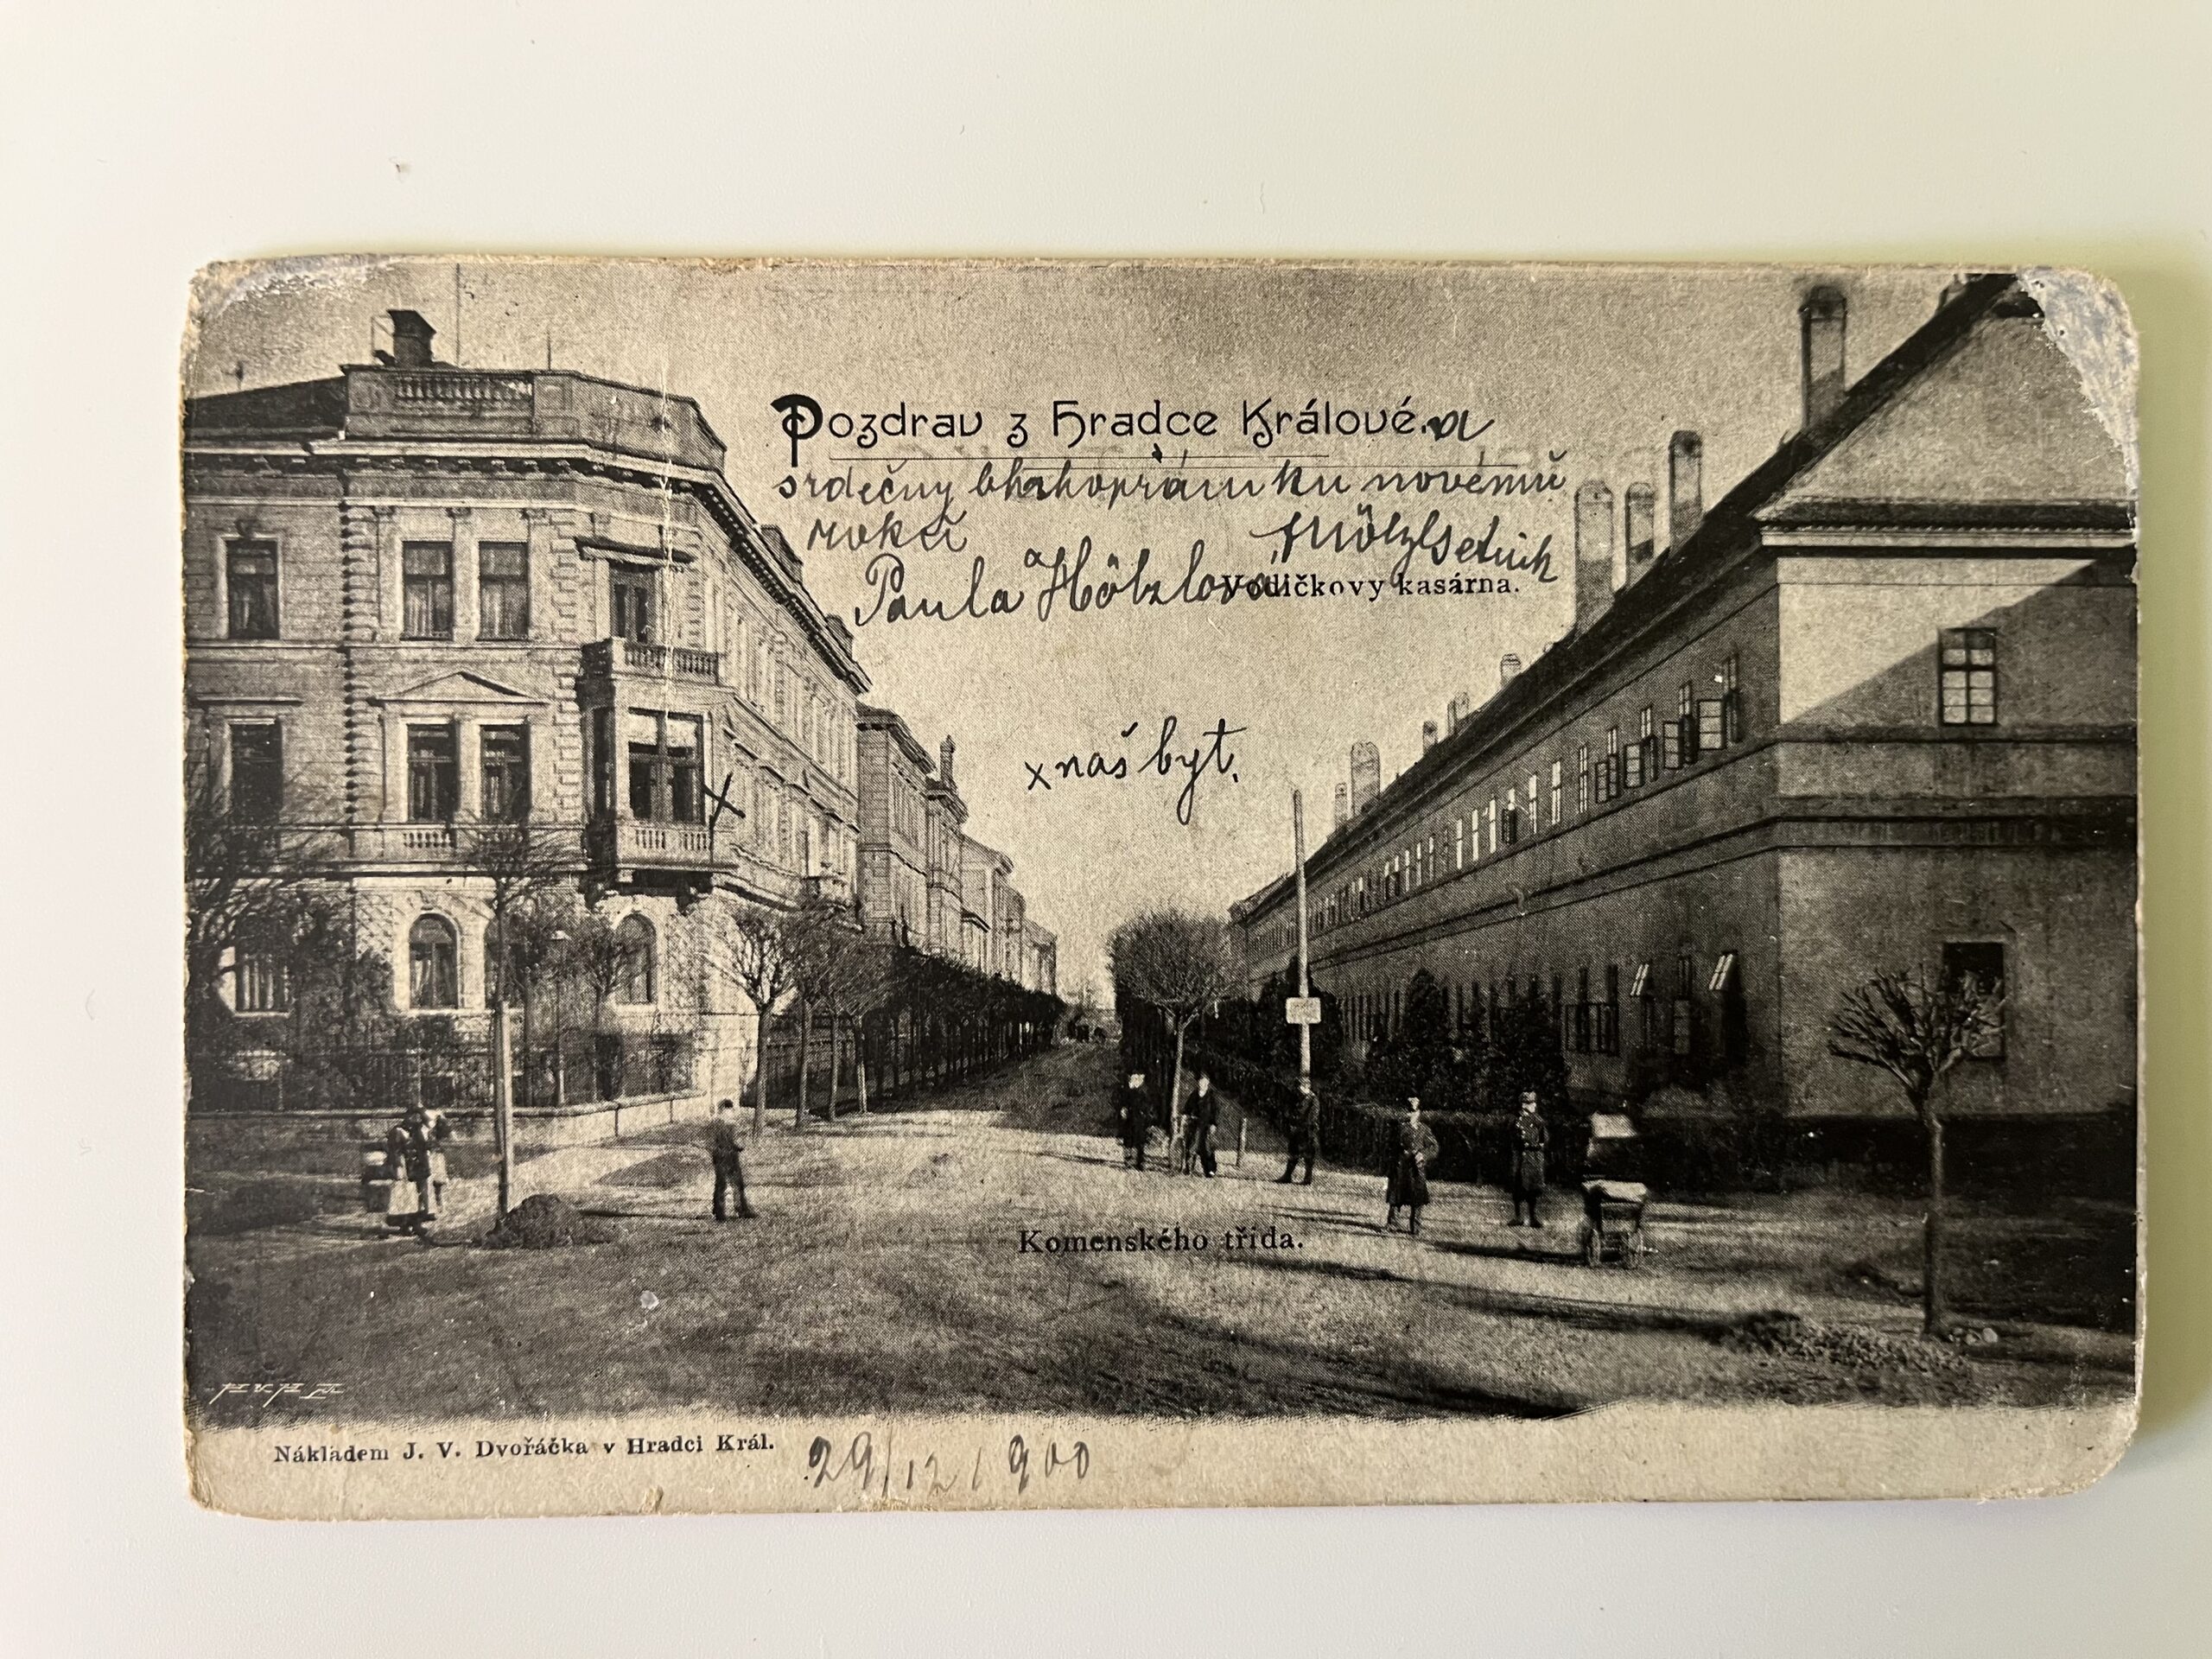 Pozdrav z Hradce Králové. a
srdečný blahopřání ku novému
roku
Paula Hölzlova
Vodičkovy kasárna.
x naš byt.
x
Komenského třida.
Nákladem J. V. Dvořáčka v Hradci Král.
29/12/900